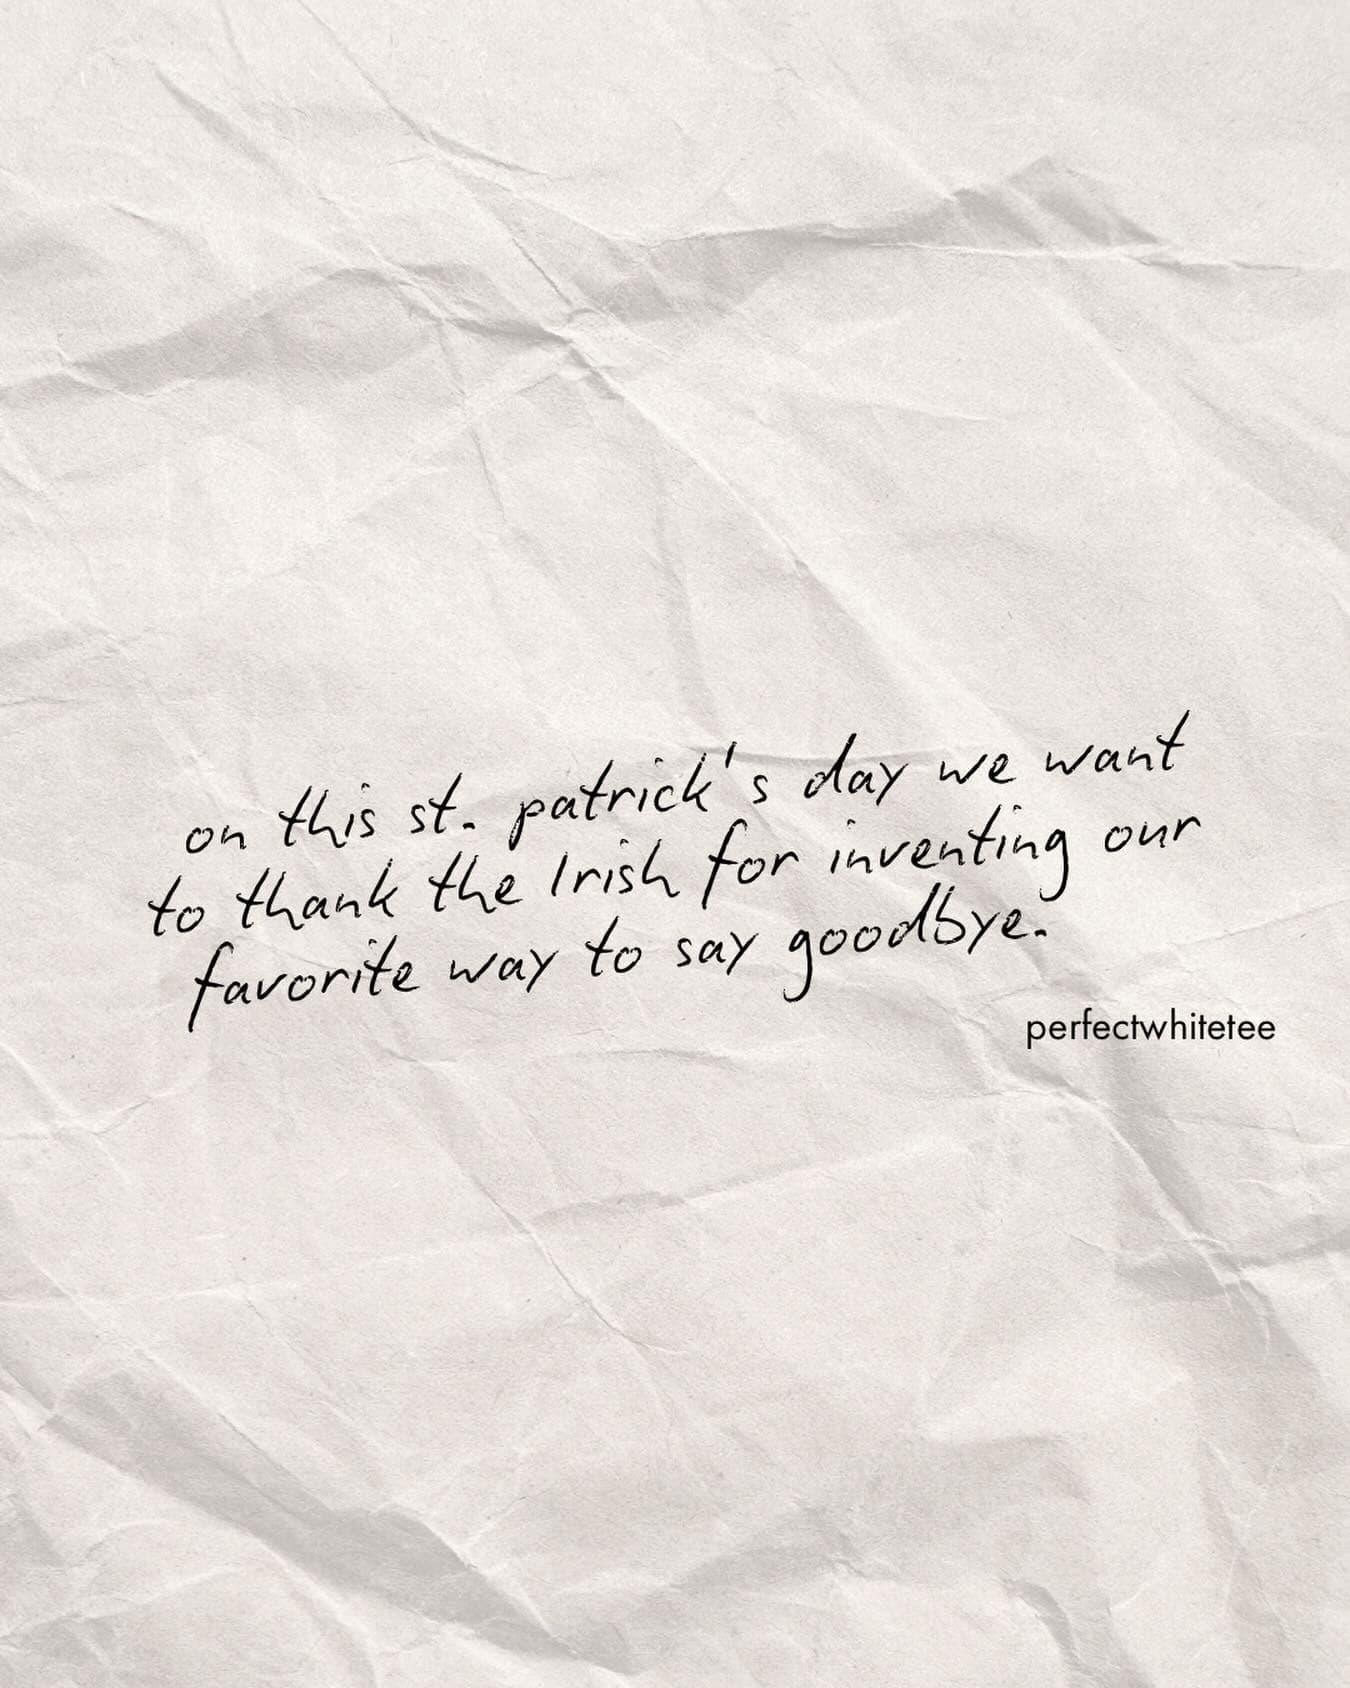 on this st. patrick's day we want
to thank the Irish for inventing our
favorite way to say goodbye.
perfectwhitetee